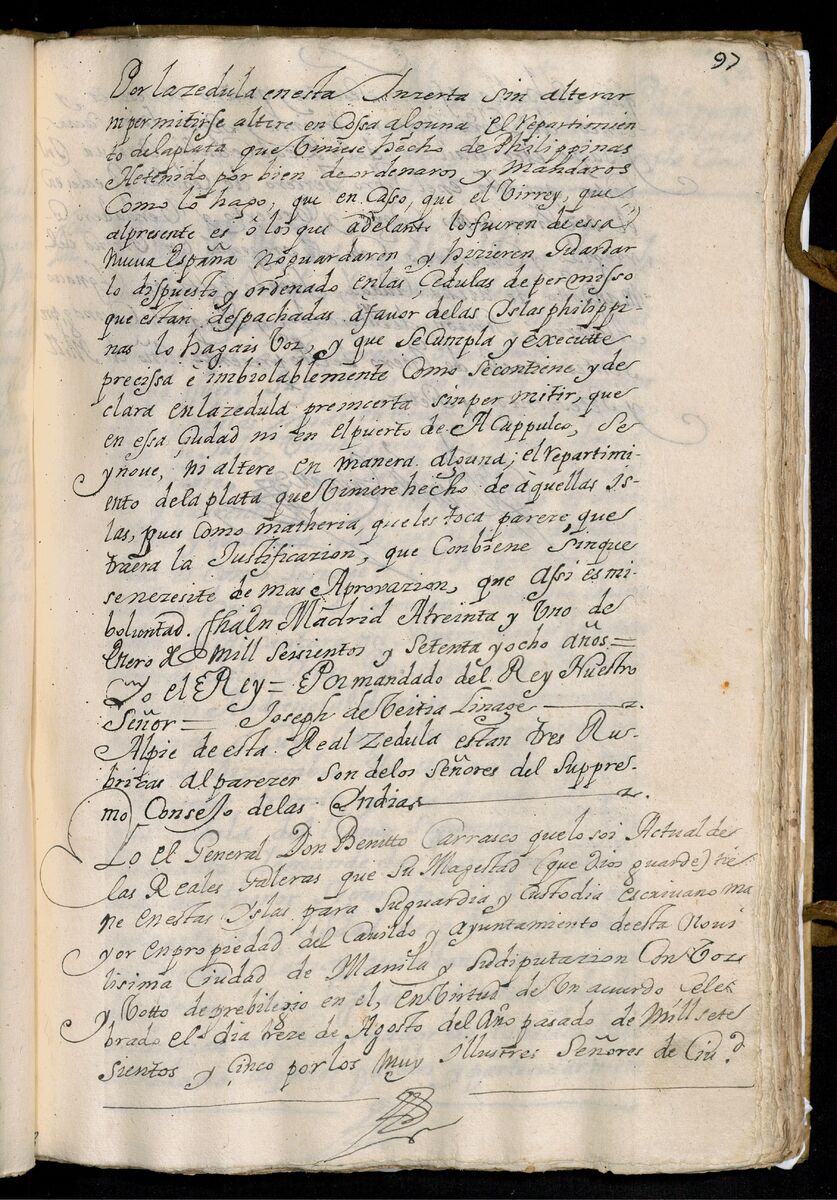 97
Por la zedula en esta Inzerta sin alterar
ni permitirse altere en Cossa alguna el repartimien
to de la plata que Viniese hecho de Philippinas
He tenido por bien de ordenaros y Mandaros
Como lo hago, que en Casso, que el Virrey, que
al presente es ô los que adelante lo fueren de essa
nueva España no guardaren y hizieren Guardar
lo dispuesto y ordenado en las Cedulas de permisso
que estan despachadas â favor de las Islas philippi-
nas lo hagais Voz, y que se Cumpla y executte
precissa ê imbiolablemente Como se contiene y de
clara en la zedula preincerta sin permitir, que
en essa Ciudad ni en el puerto de Acappulco, Se
ynove, ni altere en manera alguna, el repartimi-
ento de la plata que Viniere hecho de aquellas Is-
las, pues como matheria, que les toca pareze, que
traera la Justificazion, que Conbiene sin que
se nezesite de mas Aprovazion, que Assi es mi
boluntad. fha en Madrid A treinta y Uno de
Enero de Mill Seisientos y setenta y ocho años=
Yo el Rey= Por mandado del Rey Nuestro
Señor= Joseph de Veitia Linage
Al pie de esta Real Zedula estan tres Ru-
bricas al parezer son de los señores del Suppre-
mo Consejo de las Indias
Yo el General Don Benitto Carrasco que lo soi Actual de
las Reales Galeras que Su Magestad (que Dios guarde) tie
ne en estas Yslas para su guardia y Custodia escrivano ma
yor en propiedad del Cavildo y ayuntamiento de esta Novi
lisima Ciudad de Manila y su diputazion Con Voz
y Votto de prebilegio en el, en Virtud de Un acuerdo Cele
brado el dia treze de Agosto del Año pasado de Mill sete
sientos y Cinco por los Muy Illustres Señores de Ciu.d